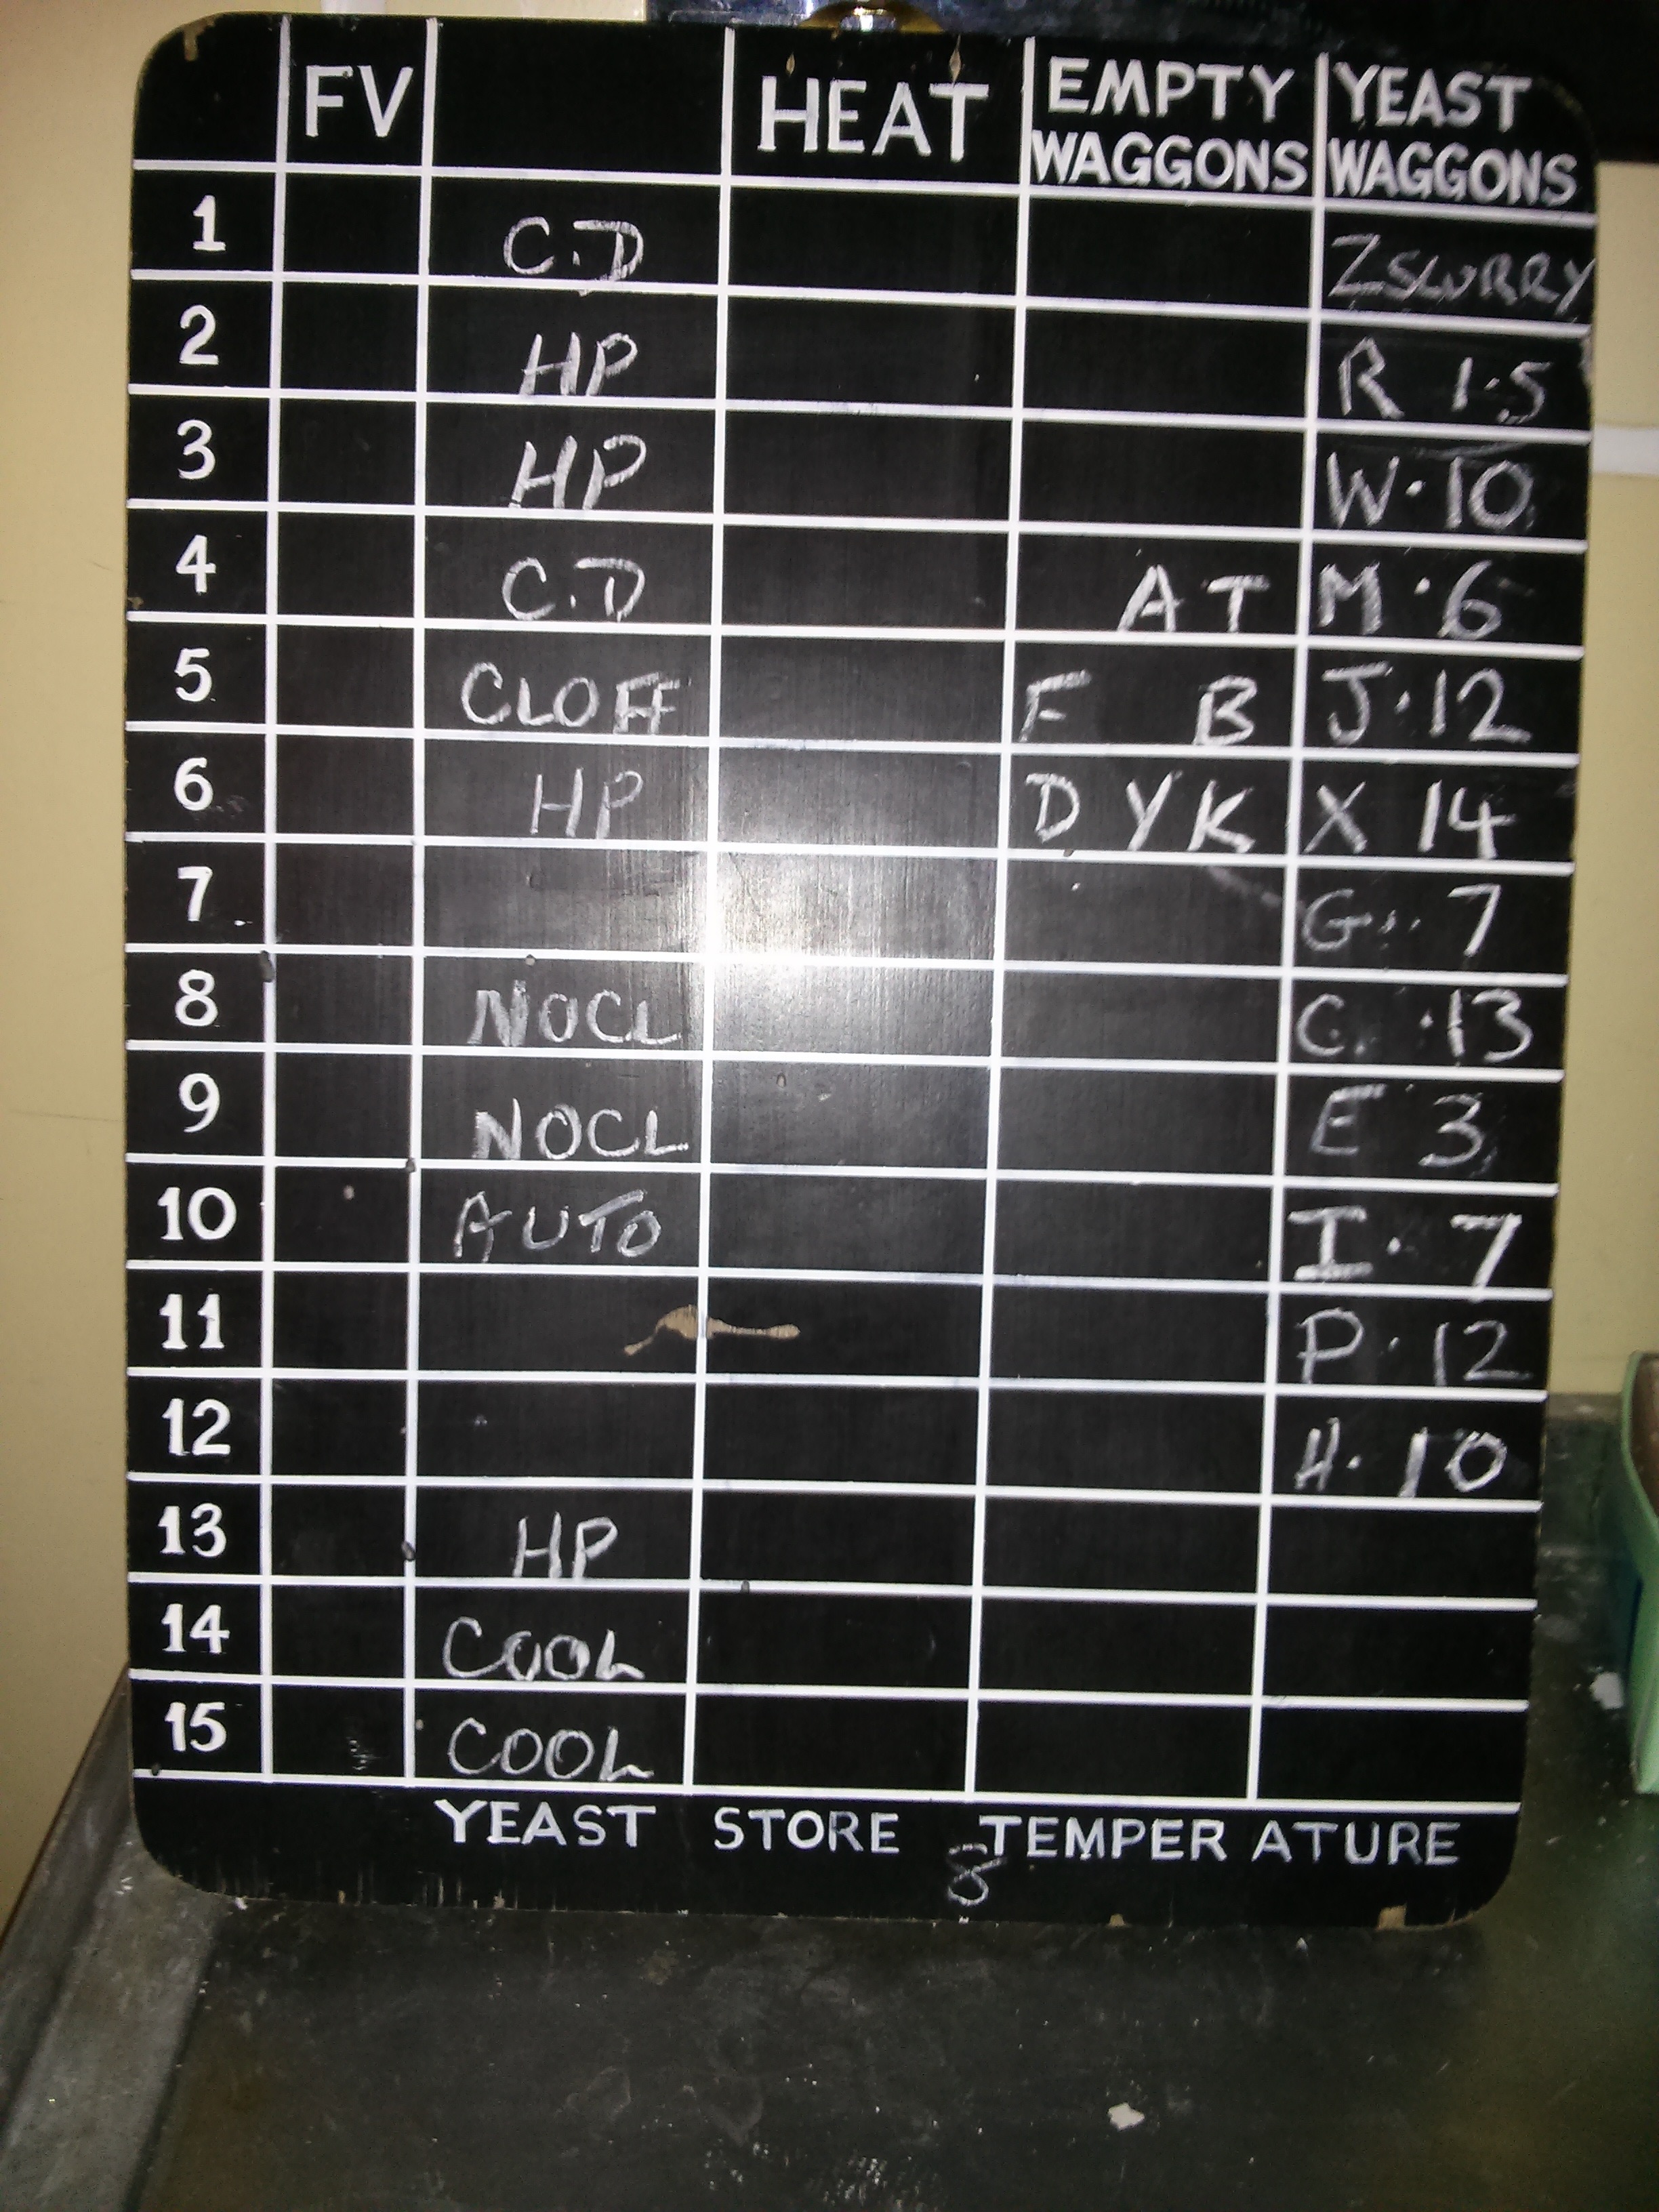 FV HEAT EMPTY WAGGONS YEAST WAGGONS
1 C.D ZSLURRY
2 HP R 1.5
3 HP W.10
4 C.D A T M.6
5 CLOFF F B J.12
6 HP D Y K X 14
7 G. 7
8 NOCL C. 13
9 NOCL E 3
10 AUTO I. 7
11 P.12
12 H.10
13 HP
14 COOL
15 COOL
YEAST STORE TEMPERATURE
8